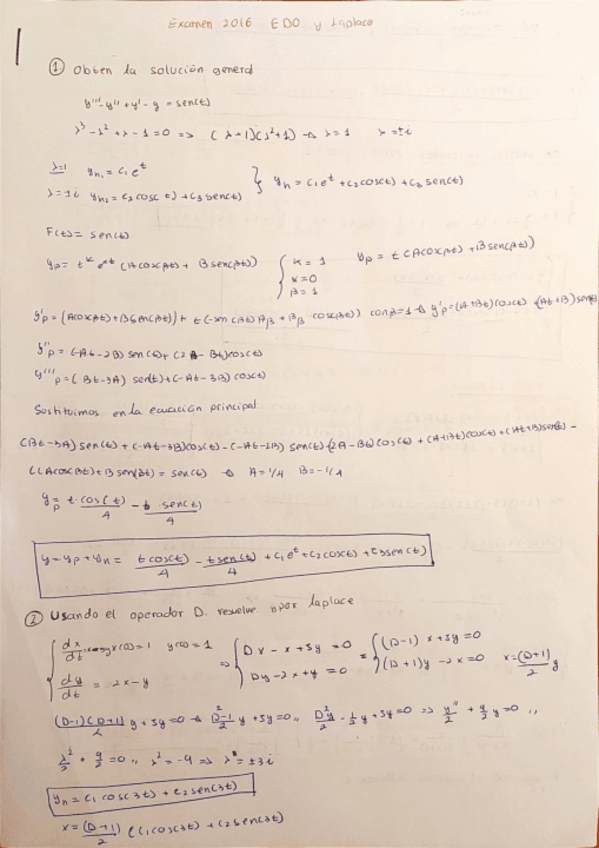 Examen 2016 EDO y Laplace
① Obten la solución general
y'''-y''+y'-y = sen(t)
λ³-λ²+λ-1=0 => (λ-1)(λ²+1) → λ=1 λ=±i
λ=1 yh₁ = c₁e^t
λ=±i yh₂ = c₂cos(t)+c₃sen(t) } yh = c₁e^t + c₂cos(t) + c₃sen(t)
F(t) = sen(t)
yp = t^k e^αt (Acos(βt) + Bsen(βt)) { k=1 yp = t(Acos(βt) + Bsen(βt))
α=0
β=1
y'p = (Acos(βt)+Bsen(βt)) + t(-sen(βt)Aβ + Bβ cos(βt)) con β=1 → y'p=(A+Bt)cos(t) + (-At+B)sen(t)
y''p = (-At-2B) sen(t) + (2A-Bt)cos(t)
y'''p = (Bt-3A) sen(t) + (-At-3B) cos(t)
Sustituimos en la ecuación principal
(Bt-3A) sen(t) + (-At-3B)cos(t) - (-At-2B) sen(t) - (2A-Bt)cos(t) + (A+Bt)cos(t) + (-At+B)sen(t) -
t(Acos(βt)+Bsen(βt) = sen(t) → A=1/4 B=-1/4
yp = t·cos(t)/4 - t·sen(t)/4
y = yp + yh = tcos(t)/4 - tsen(t)/4 + c₁e^t + c₂cos(t) + c₃sen(t)
② Usando el operador D. resuelve por laplace.
{ dx/dt x(0)=1 y(0)=1 => { Dx - x + 5y = 0 = { (D-1)x + 5y = 0
dy/dt = 2x-y Dy - 2x + y = 0 (D+1)y - 2x = 0 x = (D+1)/2 y
(D-1)(D+1)/2 y + 5y = 0 → D²-1/2 y + 5y = 0,, D²y/2 - 1/2 y + 5y = 0 => y''/2 + 9/2 y = 0,,
λ²/2 + 9/2 = 0,, λ² = -9 => λ = ±3i
yh = c₁cos(3t) + c₂sen(3t)
x = (D+1)/2 (c₁cos(3t) + c₂sen(3t)